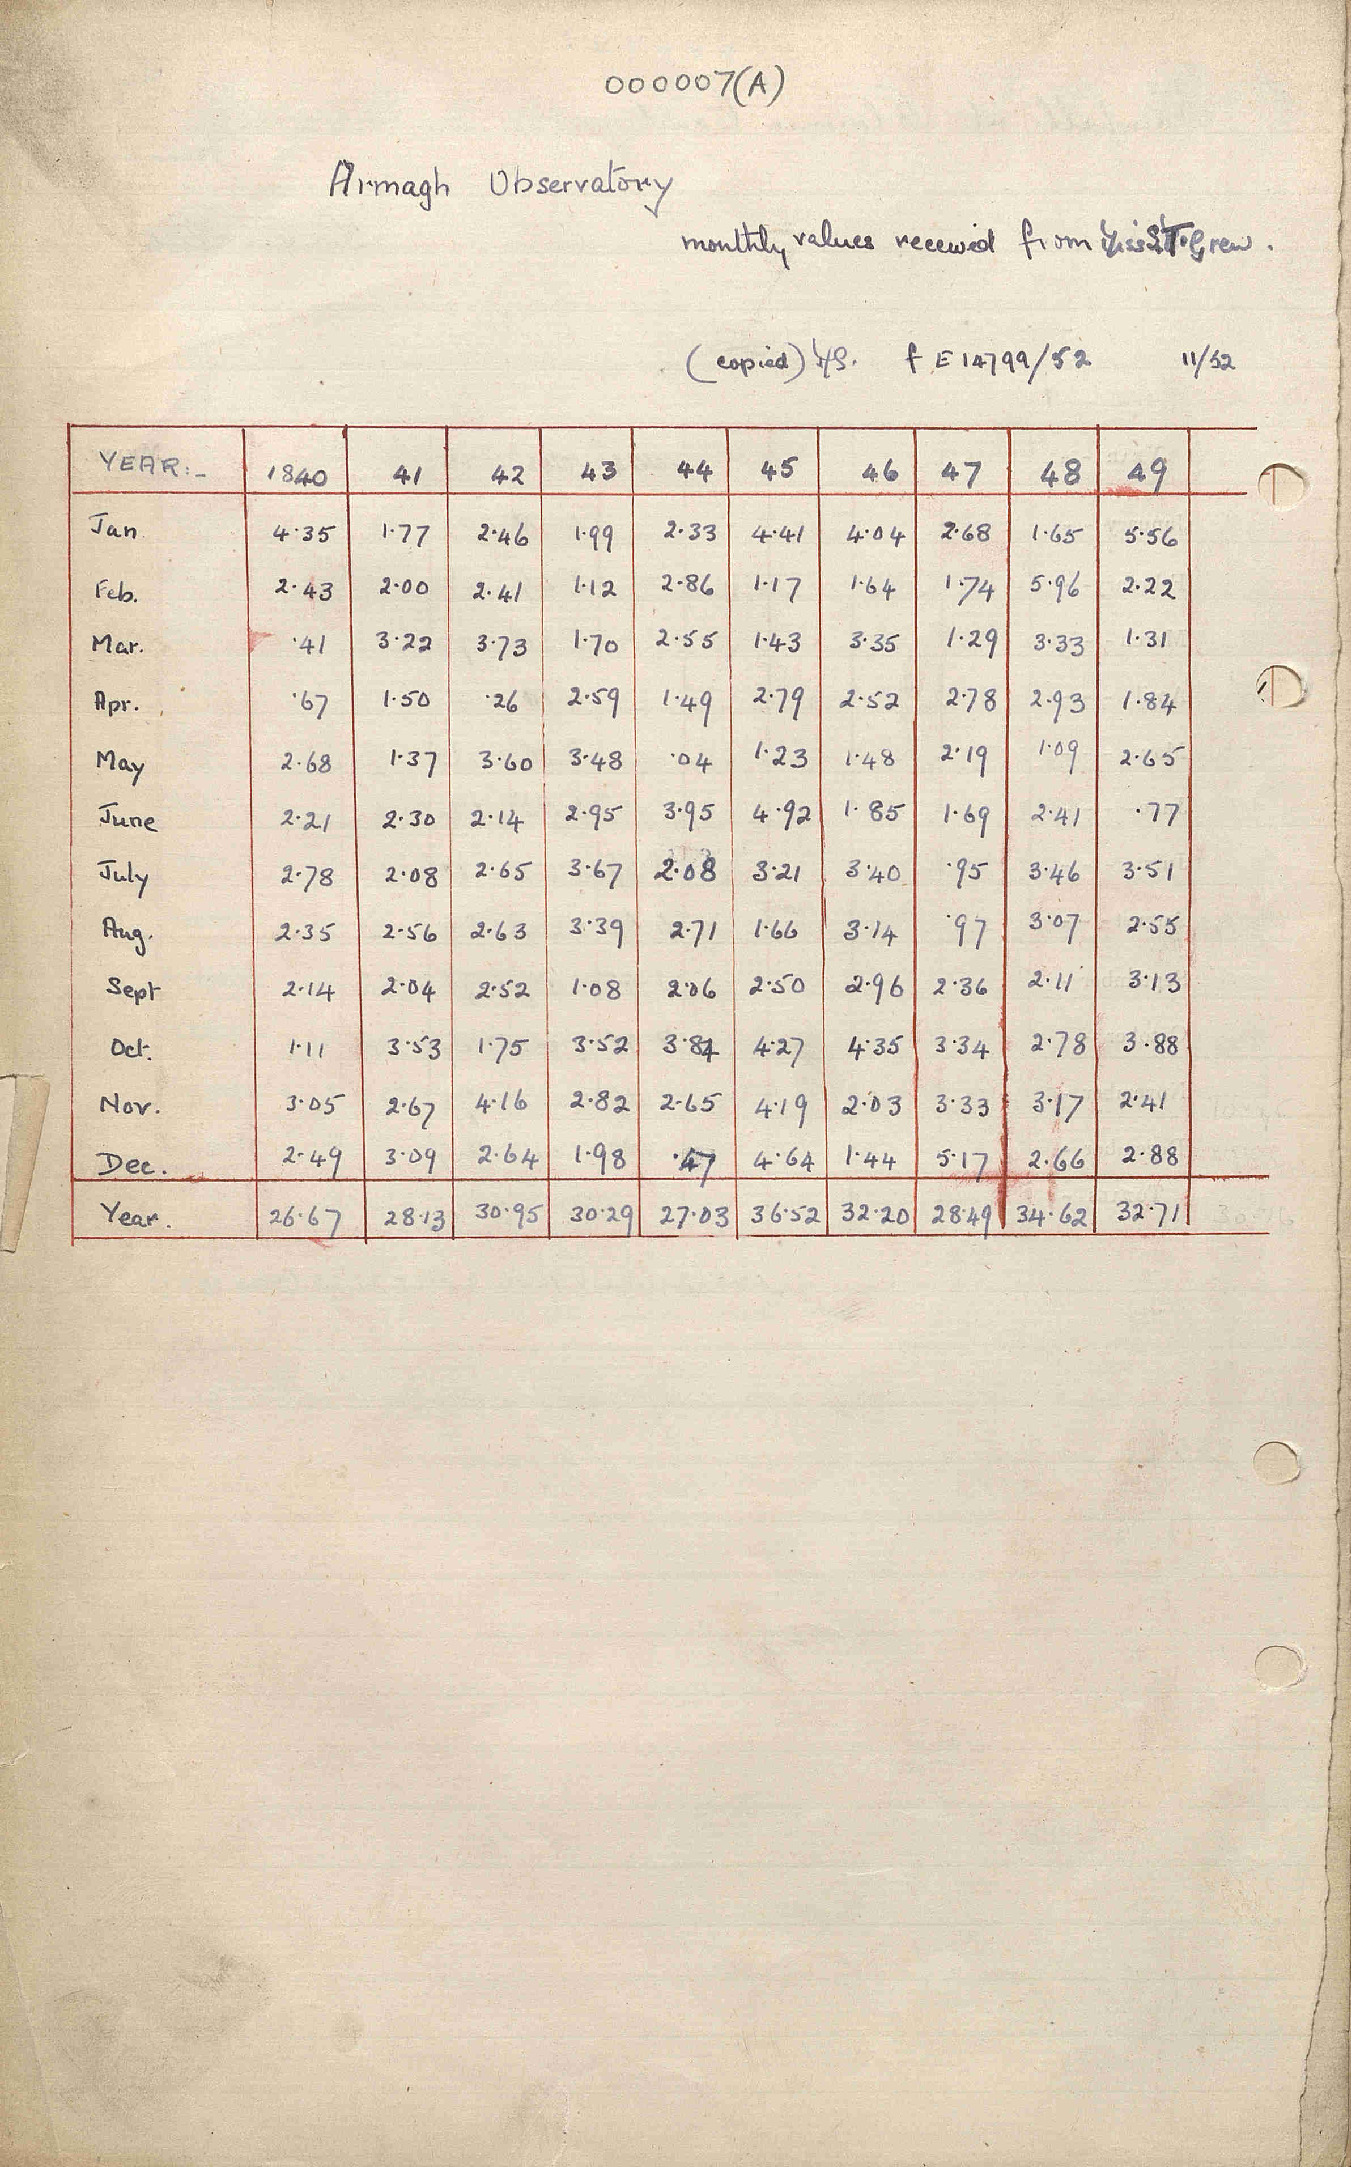 000007(A)
Armagh Observatory
monthly values received from Miss S.T. Grew.
(copied) f E 14799/52 11/52
YEAR:- 1840 41 42 43 44 45 46 47 48 49
Jan 4·35 1·77 2·46 1·99 2·33 4·41 4·04 2·68 1·65 5·56
Feb. 2·43 2·00 2·41 1·12 2·86 1·17 1·64 1·74 5·96 2·22
Mar. ·41 3·22 3·73 1·70 2·55 1·43 3·35 1·29 3·33 1·31
Apr. ·67 1·50 ·26 2·59 1·49 2·79 2·52 2·78 2·93 1·84
May 2·68 1·37 3·60 3·48 ·04 1·23 1·48 2·19 1·09 2·65
June 2·21 2·30 2·14 2·95 3·95 4·92 1·85 1·69 2·41 ·77
July 2·78 2·08 2·65 3·67 2·08 3·21 3·40 ·95 3·46 3·51
Aug. 2·35 2·56 2·63 3·39 2·71 1·66 3·14 ·97 3·07 2·55
Sept 2·14 2·04 2·52 1·08 2·06 2·50 2·96 2·36 2·11 3·13
Oct. 1·11 3·53 1·75 3·52 3·84 4·27 4·35 3·34 2·78 3·88
Nov. 3·05 2·67 4·16 2·82 2·65 4·19 2·03 3·33 3·17 2·41
Dec. 2·49 3·09 2·64 1·98 ·47 4·64 1·44 5·17 2·66 2·88
Year. 26·67 28·13 30·95 30·29 27·03 36·52 32·20 28·49 34·62 32·71